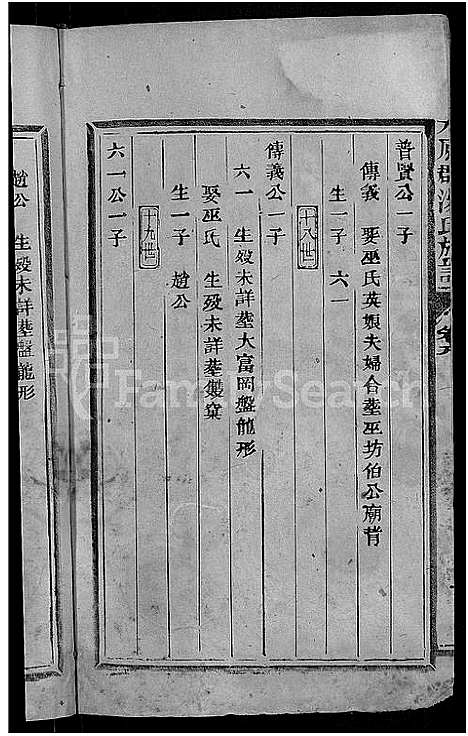 普賢公一子
傳義　娶巫氏英娘夫婦合塟巫坊伯公廟背
生一子　六一
十八世
傳義公一子
六一　生歿未詳塟大富岡盤龍形
娶巫氏　生歿未詳塟製窠
生一子　趙公
十九世
六一公一子
趙公　生歿未詳塟盤龍形
FamilySearch